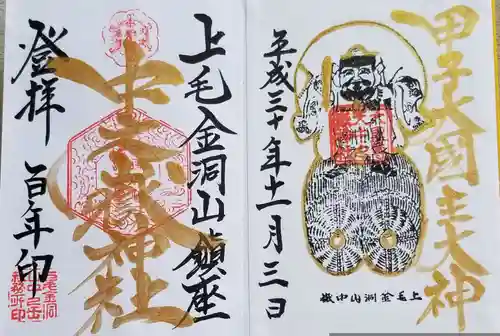 甲子大國主大神
上毛金洞山中嶽
平成三十年十一月三日
上毛金洞山鎮座
中之嶽神社
登拝
百年印